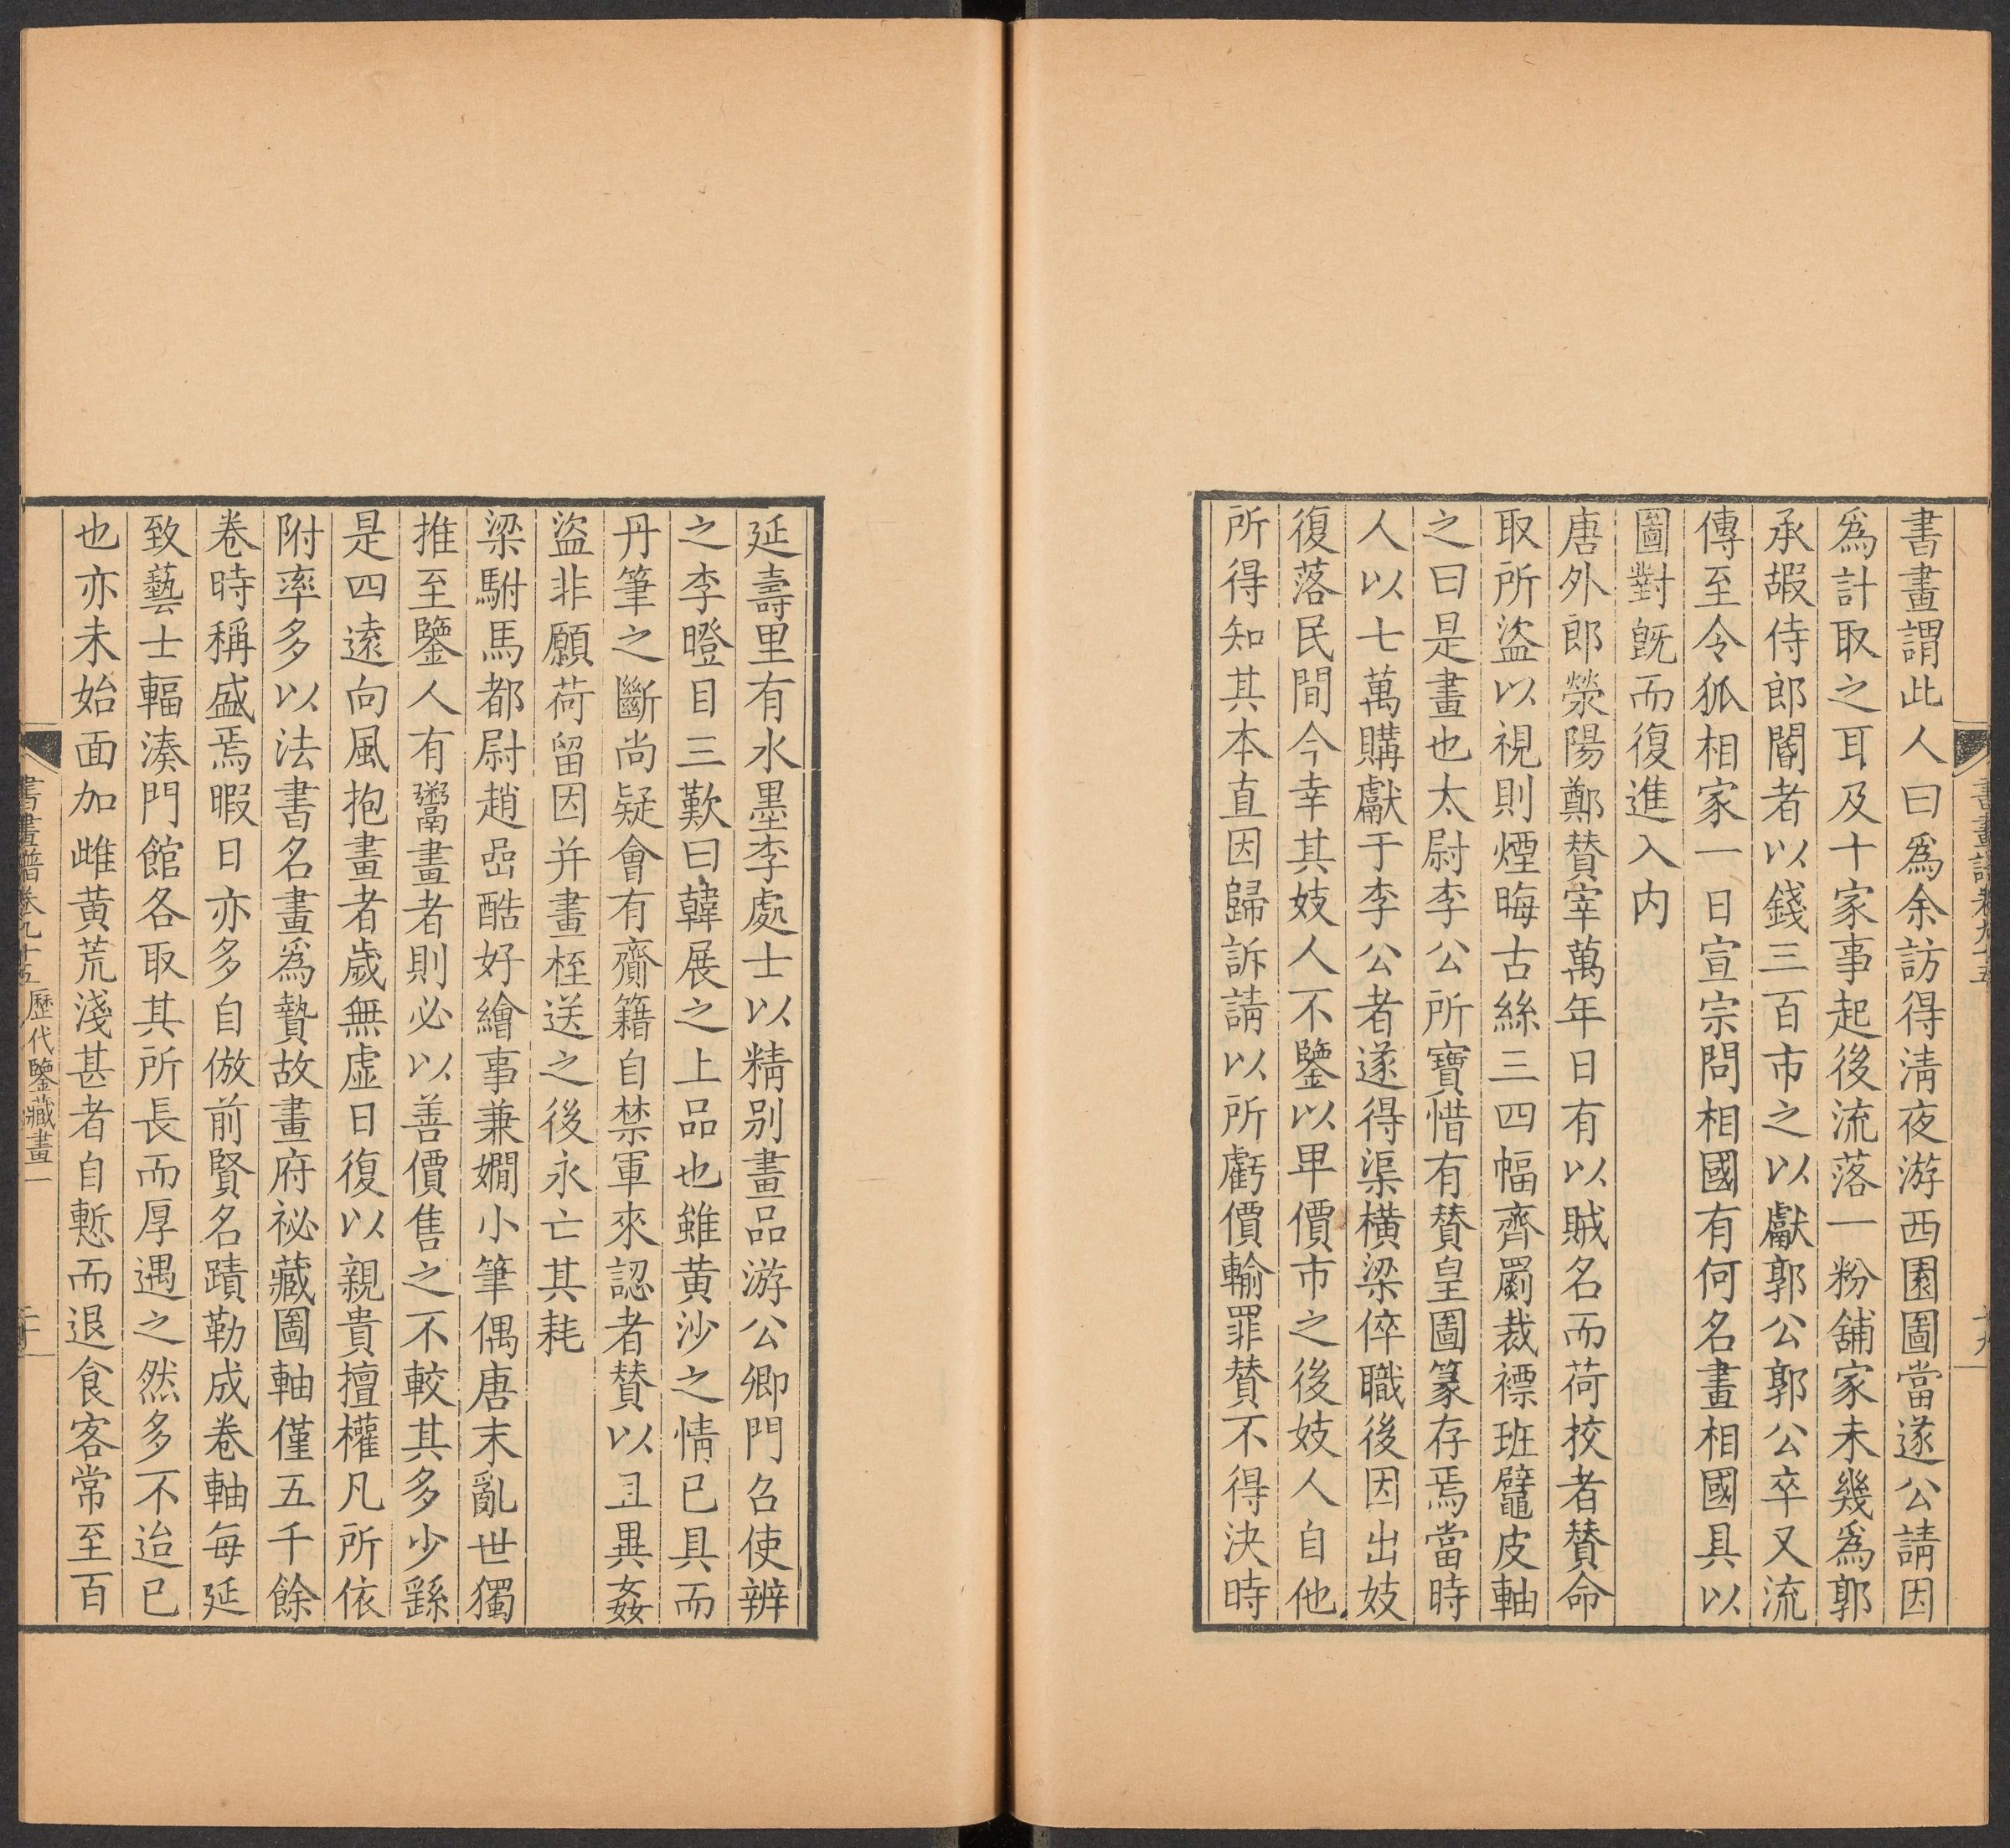 書畫謂此人曰爲余訪得淸夜游西園圖當遂公請因
爲計取之耳及十家事起後流落一粉舖家未幾爲郭
承嘏侍郎閽者以錢三百市之以獻郭公郭公卒又流
傳至令狐相家一日宣宗問相國有何名畫相國具以
圖對旣而復進入内
唐外郎滎陽鄭贊宰萬年日有以賊名而荷校者贊命
取所盜以視則煙晦古絲三四幅齊罽裁褾班鼊皮軸
之曰是畫也太尉李公所寶惜有贊皇圖篆存焉當時
人以七萬購獻于李公者遂得渠橫梁倅職後因出妓
復落民間今幸其妓人不鑒以卑價市之後妓人自他
所得知其本直因歸訴請以所虧價輸罪贊不得決時
延壽里有水墨李處士以精別畫品游公卿門召使辨
之李瞪目三歎曰韓展之上品也雖黄沙之情已具而
丹筆之斷尚疑會有齎籍自禁軍來認者贊以且異姦
盜非願荷留因并畫桎送之後永亡其耗
梁駙馬都尉趙嵒酷好繪事兼嫺小筆偶唐末亂世獨
推至鑒人有鬻畫者則必以善價售之不較其多少繇
是四遠向風抱畫者歲無虛日復以親貴擅權凡所依
附率多以法書名畫爲贄故畫府祕藏圖軸僅五千餘
卷時稱盛焉暇日亦多自倣前賢名蹟勒成卷軸每延
致藝士輻湊門館各取其所長而厚遇之然多不迨已
也亦未始面加雌黄荒淺甚者自慙而退食客常至百
書畫譜卷九十五 歷代鑒藏畫一